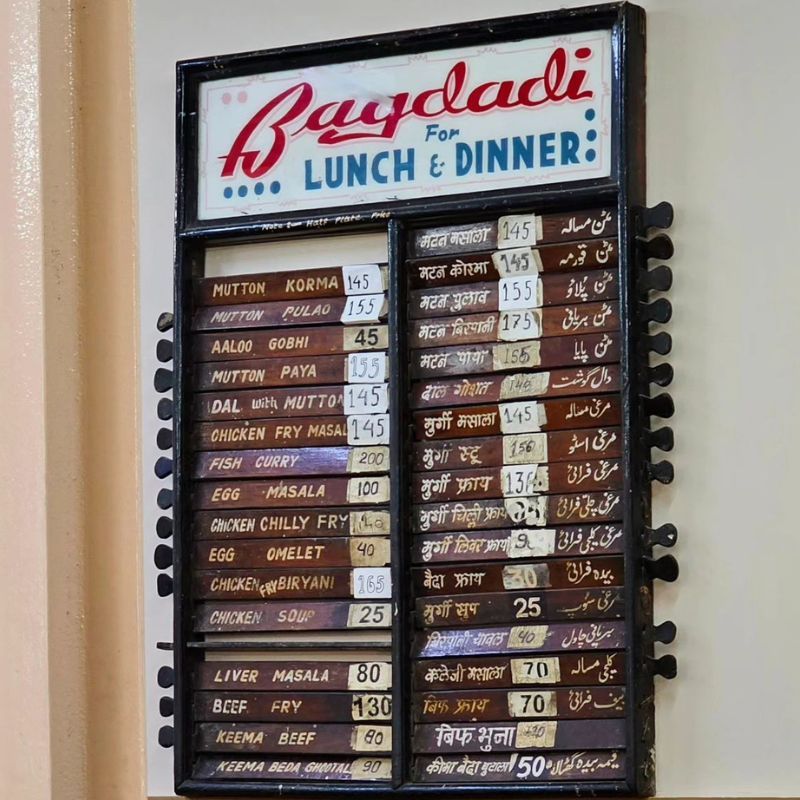 Bagdadi
For
LUNCH & DINNER
Note :— Half Plate Price
MUTTON KORMA 145
MUTTON PULAO 155
AALOO GOBHI 45
MUTTON PAYA 155
DAL with MUTTON 145
CHICKEN FRY MASAL 145
FISH CURRY 200
EGG MASALA 100
CHICKEN CHILLY FRY
EGG OMELET 40
CHICKEN FRY BIRYANI 165
CHICKEN SOUP 25
LIVER MASALA 80
BEEF FRY 130
KEEMA BEEF 80
KEEMA BEDA GHOOTAL 90
मटन मसाला 145 مٹن مسالہ
मटन कोरमा 145 مٹن قورمہ
मटन पुलाव 155 مٹن پلاؤ
मटन बिरयानी 175 مٹن بریانی
मटन पाया 155 مٹن پایا
दाल गोश्त دال گوشت
मुर्गी मसाला 145 مرغی مسالہ
मुर्गी स्टू 150 مرغی اسٹو
मुर्गी फ्राय مرغی فرائی
मुर्गी चिल्ली फ्राय مرغی چلی فرائی
मुर्गी लिवर फ्राय مرغی کلیجی فرائی
बैदा फ्राय 30 بیدہ فرائی
मुर्गी सूप 25 مرغی سوپ
बिरयानी चावल 40 بریانی چاول
कलेजी मसाला 70 کلیجی مسالہ
बिफ फ्राय 70 بیف فرائی
बिफ भुना
कीमा बैदा घुटाला 50 قیمہ بیدہ گھٹالہ